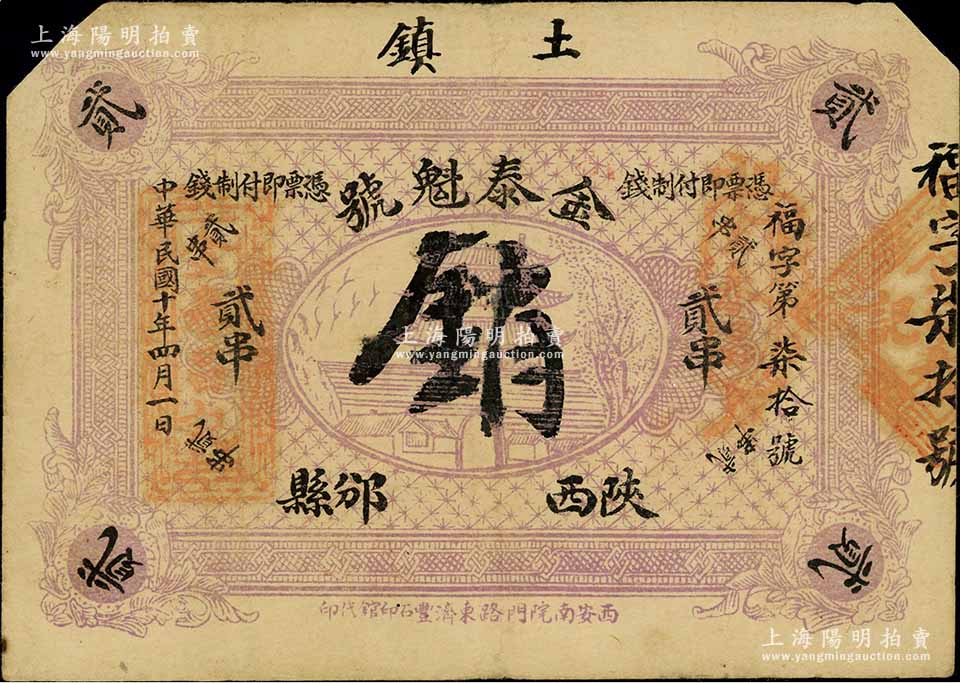 上海陽明拍賣
www.yangmingauction.com
土鎮
貳
貳
金泰魁號
憑票即付制錢
憑票即付制錢
福字第柒拾號
福字第柒拾號
貳串
貳串
中華民國十年四月一日
銷
上海陽明拍賣
www.yangmingauction.com
陝西
郃縣
貳
貳
西安南院門路東濟豐石印館代印
上海陽明拍賣
www.yangmingauction.com